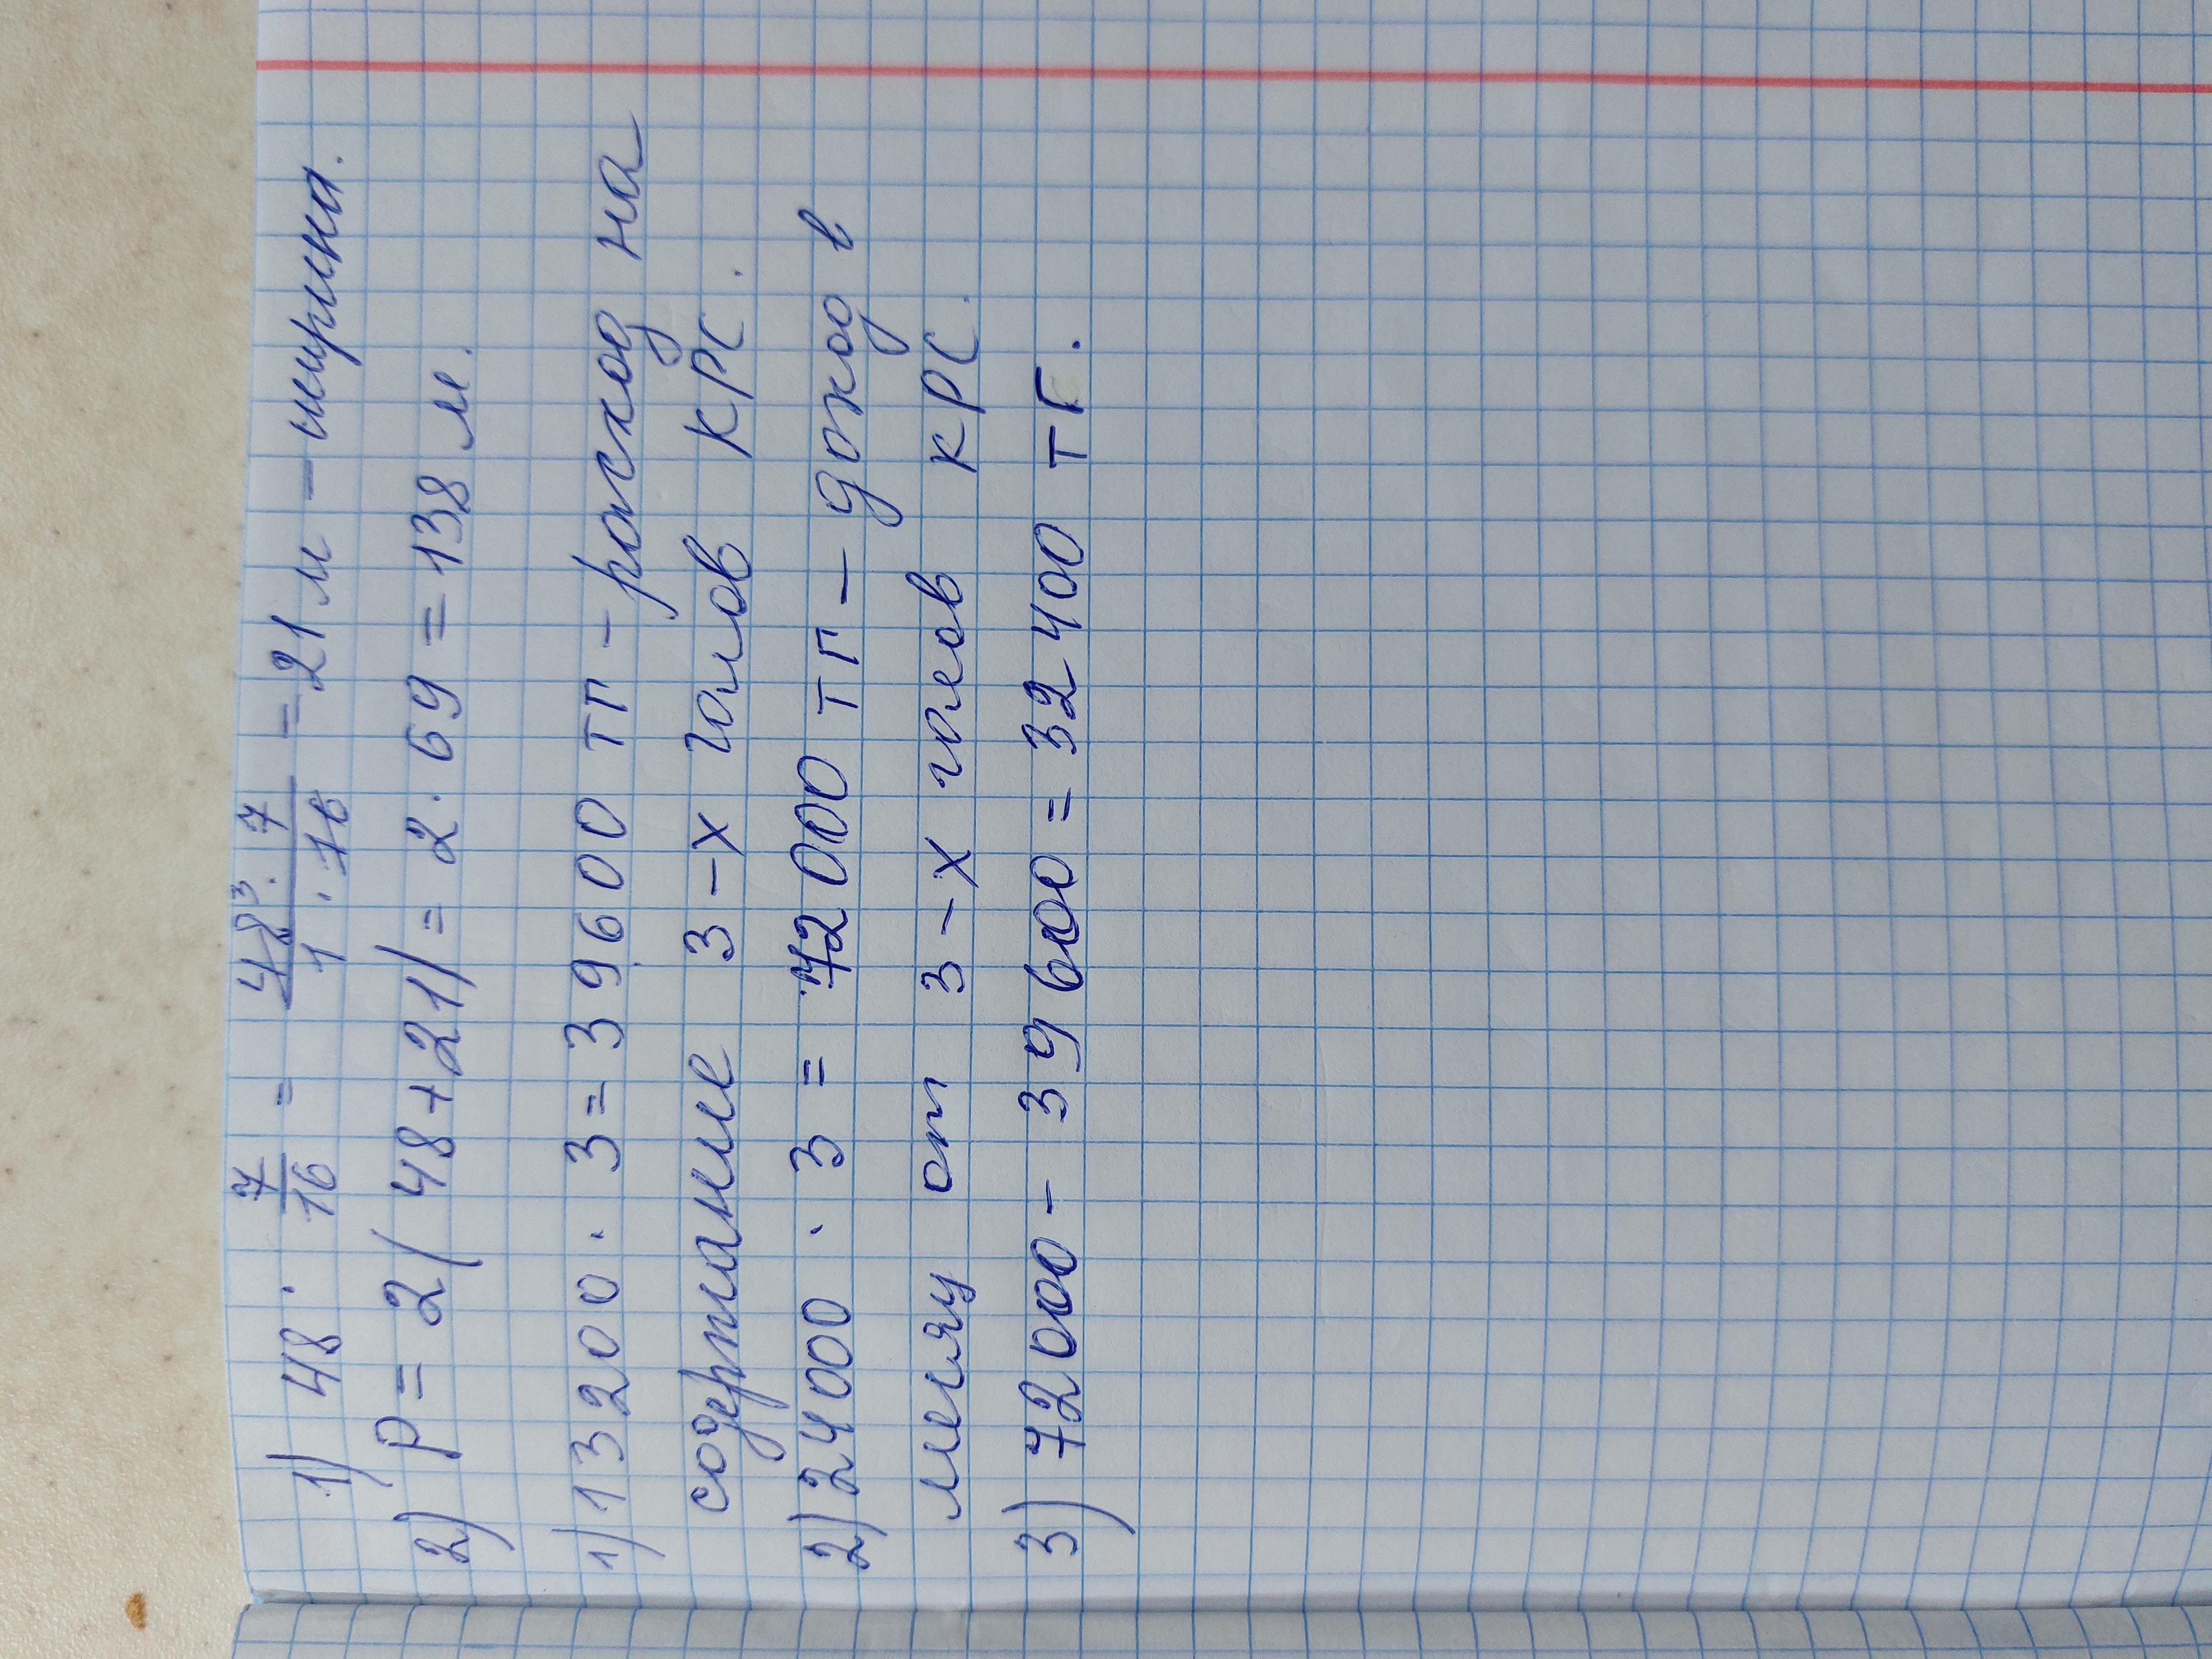 1) 48 · 7/16 = 48³ · 7 / 1 · 16 = 21 м – ширина.
2) P = 2(48+21) = 2 · 69 = 138 м.
1) 13200 · 3 = 39600 тг – расход на
содержание 3-х голов КРС.
2) 24000 · 3 = 72000 тг – доход в
месяц от 3-х голов КРС.
3) 72000 – 39600 = 32400 тг.